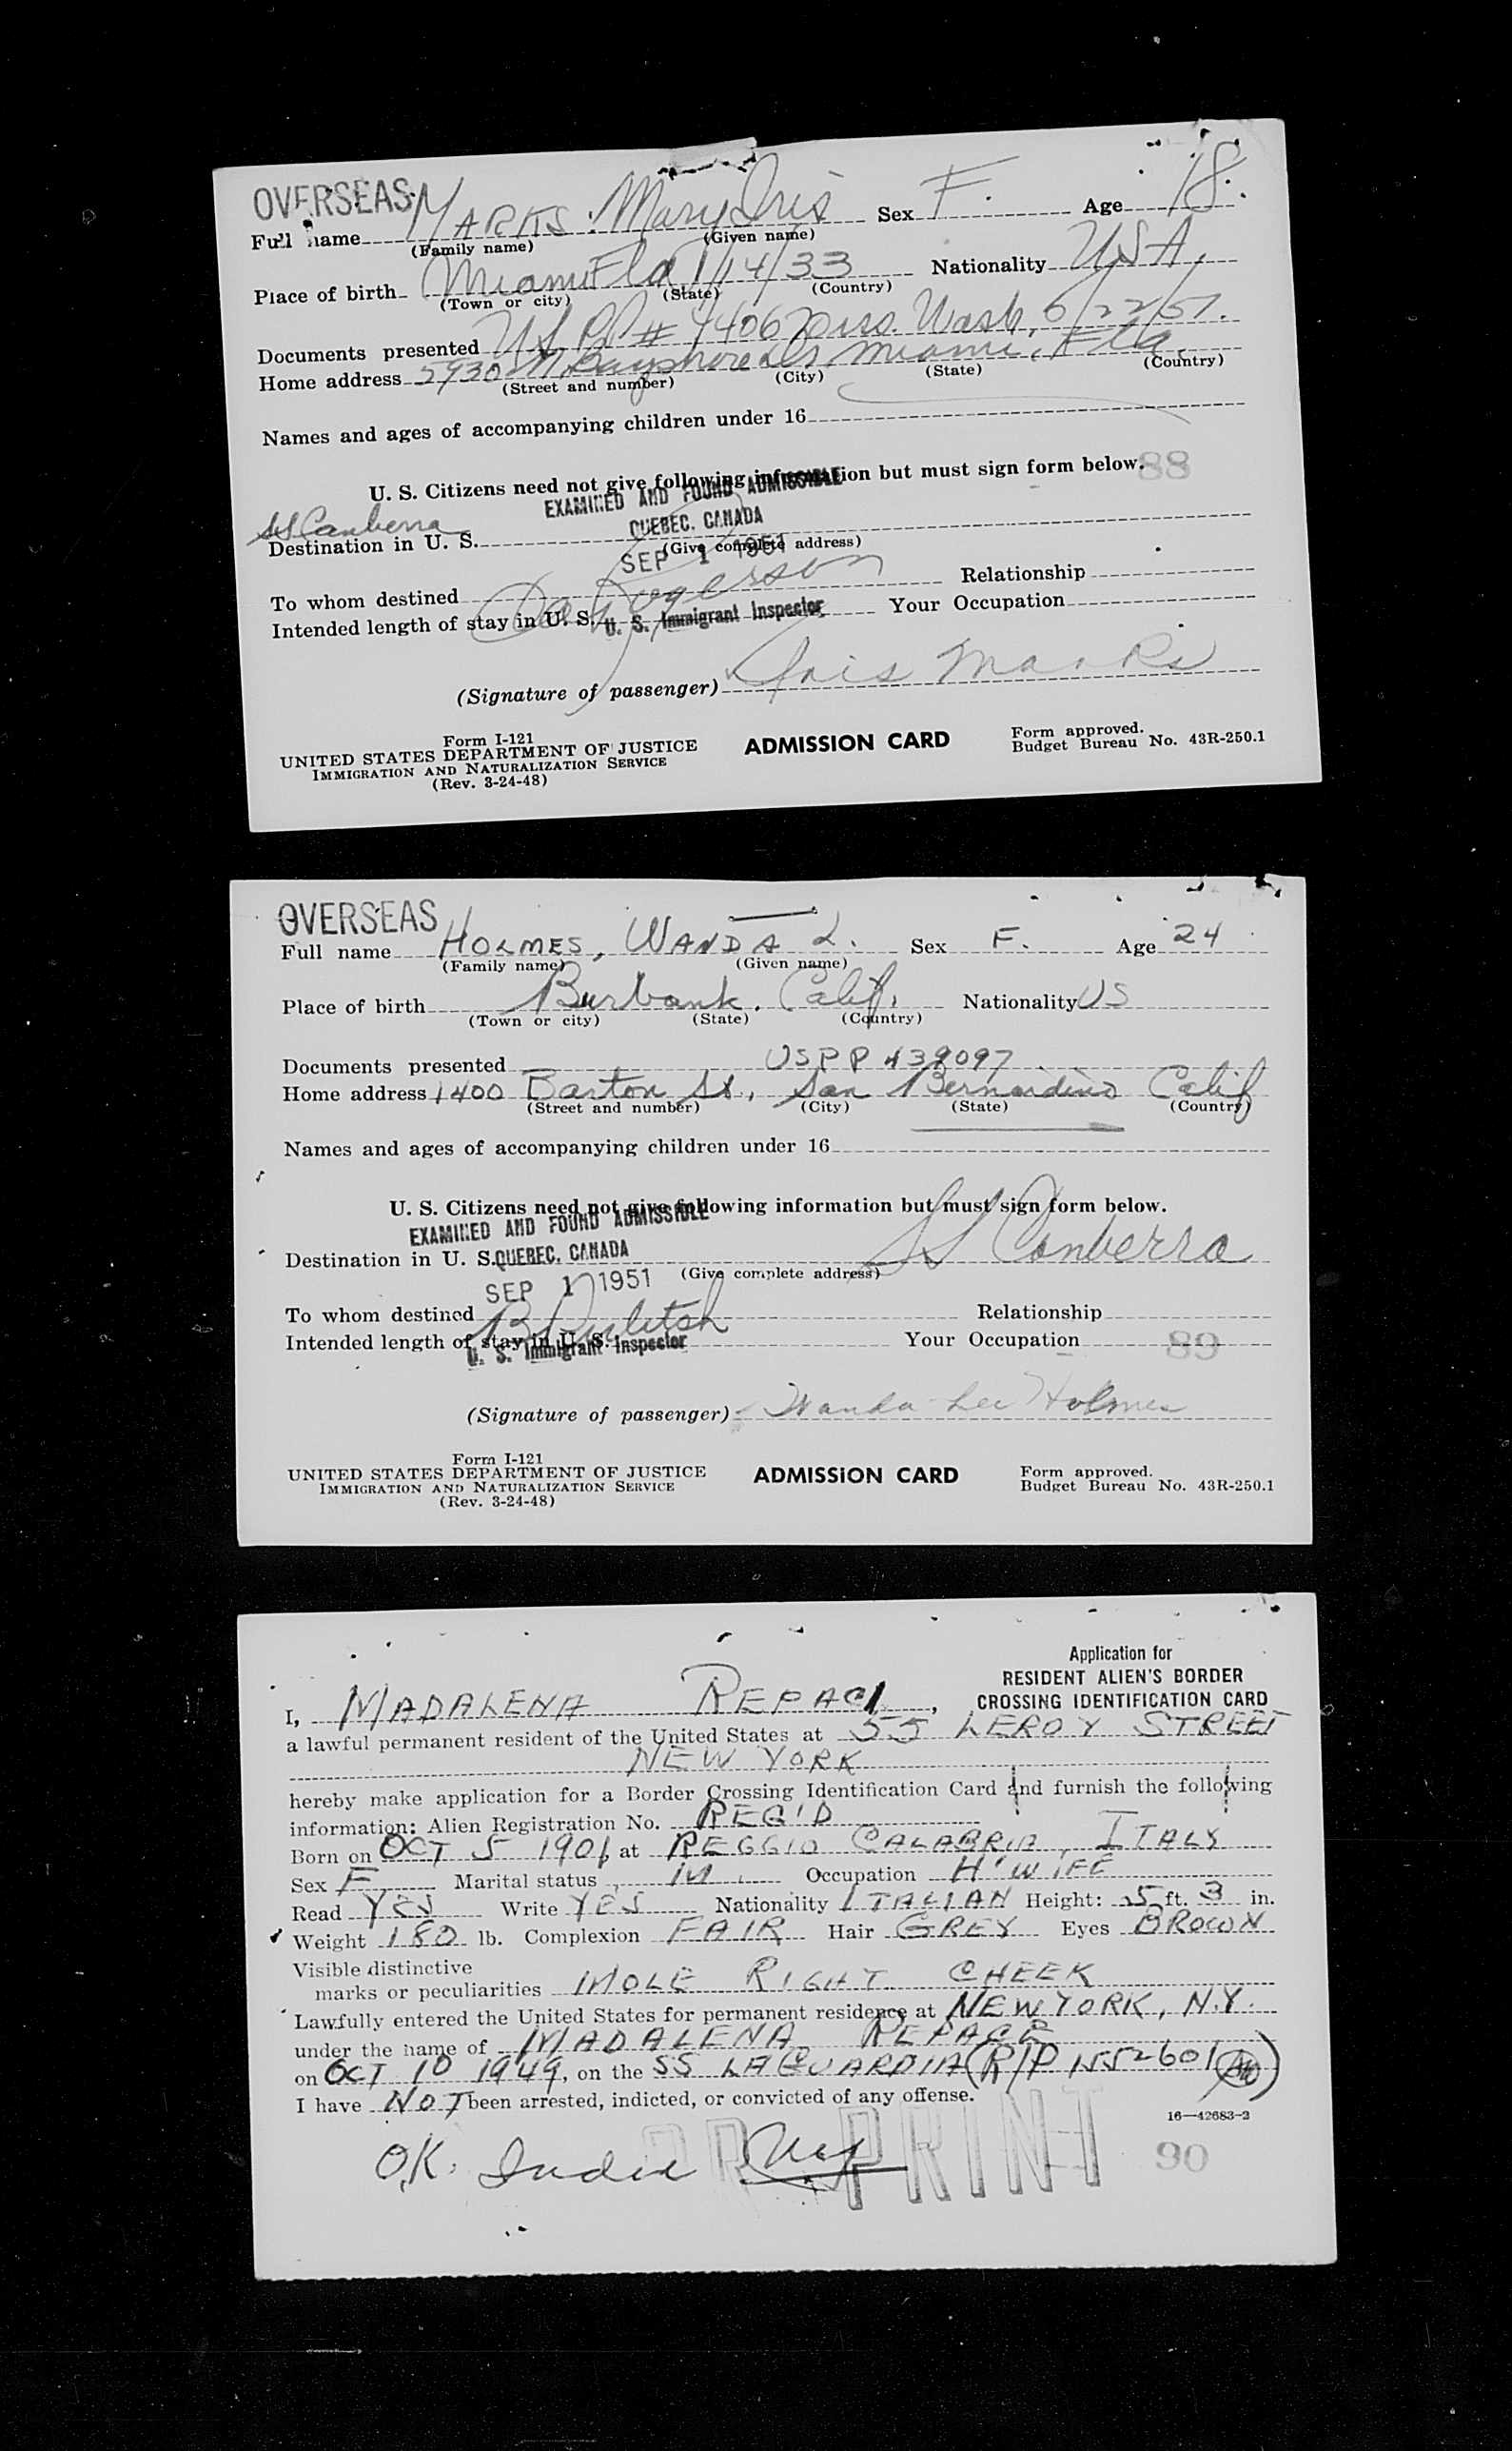 OVERSEAS
Full name MARKS. Mary Iris Sex F. Age 18.
(Family name) (Given name)
Place of birth Miami Fla 1/14/33 Nationality USA.
(Town or city) (State) (Country)
Documents presented US PP # 4406 iss. Wash. 6/22/51.
Home address 5930 N. Bayshore Dr. Miami, Fla.
(Street and number) (City) (State) (Country)
Names and ages of accompanying children under 16
U. S. Citizens need not give following information but must sign form below.
88
EXAMINED AND FOUND ADMISSIBLE
SS Canberra
QUEBEC. CANADA
Destination in U. S.
(Give complete address)
SEP 1 1951
To whom destined Relationship
Rogerson
Intended length of stay in U. S. Your Occupation
U. S. Immigrant Inspector
(Signature of passenger) Iris Marks
Form I-121
UNITED STATES DEPARTMENT OF JUSTICE
IMMIGRATION AND NATURALIZATION SERVICE
(Rev. 3-24-48)
ADMISSION CARD
Form approved.
Budget Bureau No. 43R-250.1
OVERSEAS
Full name HOLMES, WANDA L. Sex F. Age 24
(Family name) (Given name)
Place of birth Burbank. Calif. Nationality US
(Town or city) (State) (Country)
Documents presented USPP 439097
Home address 1400 Barton St., San Bernardino Calif
(Street and number) (City) (State) (Country)
Names and ages of accompanying children under 16
U. S. Citizens need not give following information but must sign form below.
EXAMINED AND FOUND ADMISSIBLE
Destination in U. S. QUEBEC. CANADA SS Canberra
(Give complete address)
SEP 1 1951
To whom destined Relationship
Intended length of stay in U. S. Your Occupation 89
U. S. Immigrant Inspector
(Signature of passenger) Wanda Lee Holmes
Form I-121
UNITED STATES DEPARTMENT OF JUSTICE
IMMIGRATION AND NATURALIZATION SERVICE
(Rev. 3-24-48)
ADMISSION CARD
Form approved.
Budget Bureau No. 43R-250.1
Application for
RESIDENT ALIEN'S BORDER
CROSSING IDENTIFICATION CARD
I, MADALENA REPACI,
a lawful permanent resident of the United States at 55 LEROY STREET
NEW YORK
hereby make application for a Border Crossing Identification Card and furnish the following
information: Alien Registration No. REG'D
Born on OCT 5 1901, at REGGIO CALABRIA, ITALY
Sex F Marital status M Occupation H'WIFE
Read YES Write YES Nationality ITALIAN Height: 5 ft. 3 in.
Weight 180 lb. Complexion FAIR Hair GREY Eyes BROWN
Visible distinctive
marks or peculiarities MOLE RIGHT CHEEK
Lawfully entered the United States for permanent residence at NEW YORK, N.Y.
under the name of MADALENA REPACE
on OCT 10 1949, on the SS LAGUARDIA (R/P 1552601)
I have NOT been arrested, indicted, or convicted of any offense.
16—42683-2
O.K. Index
PRINT
90